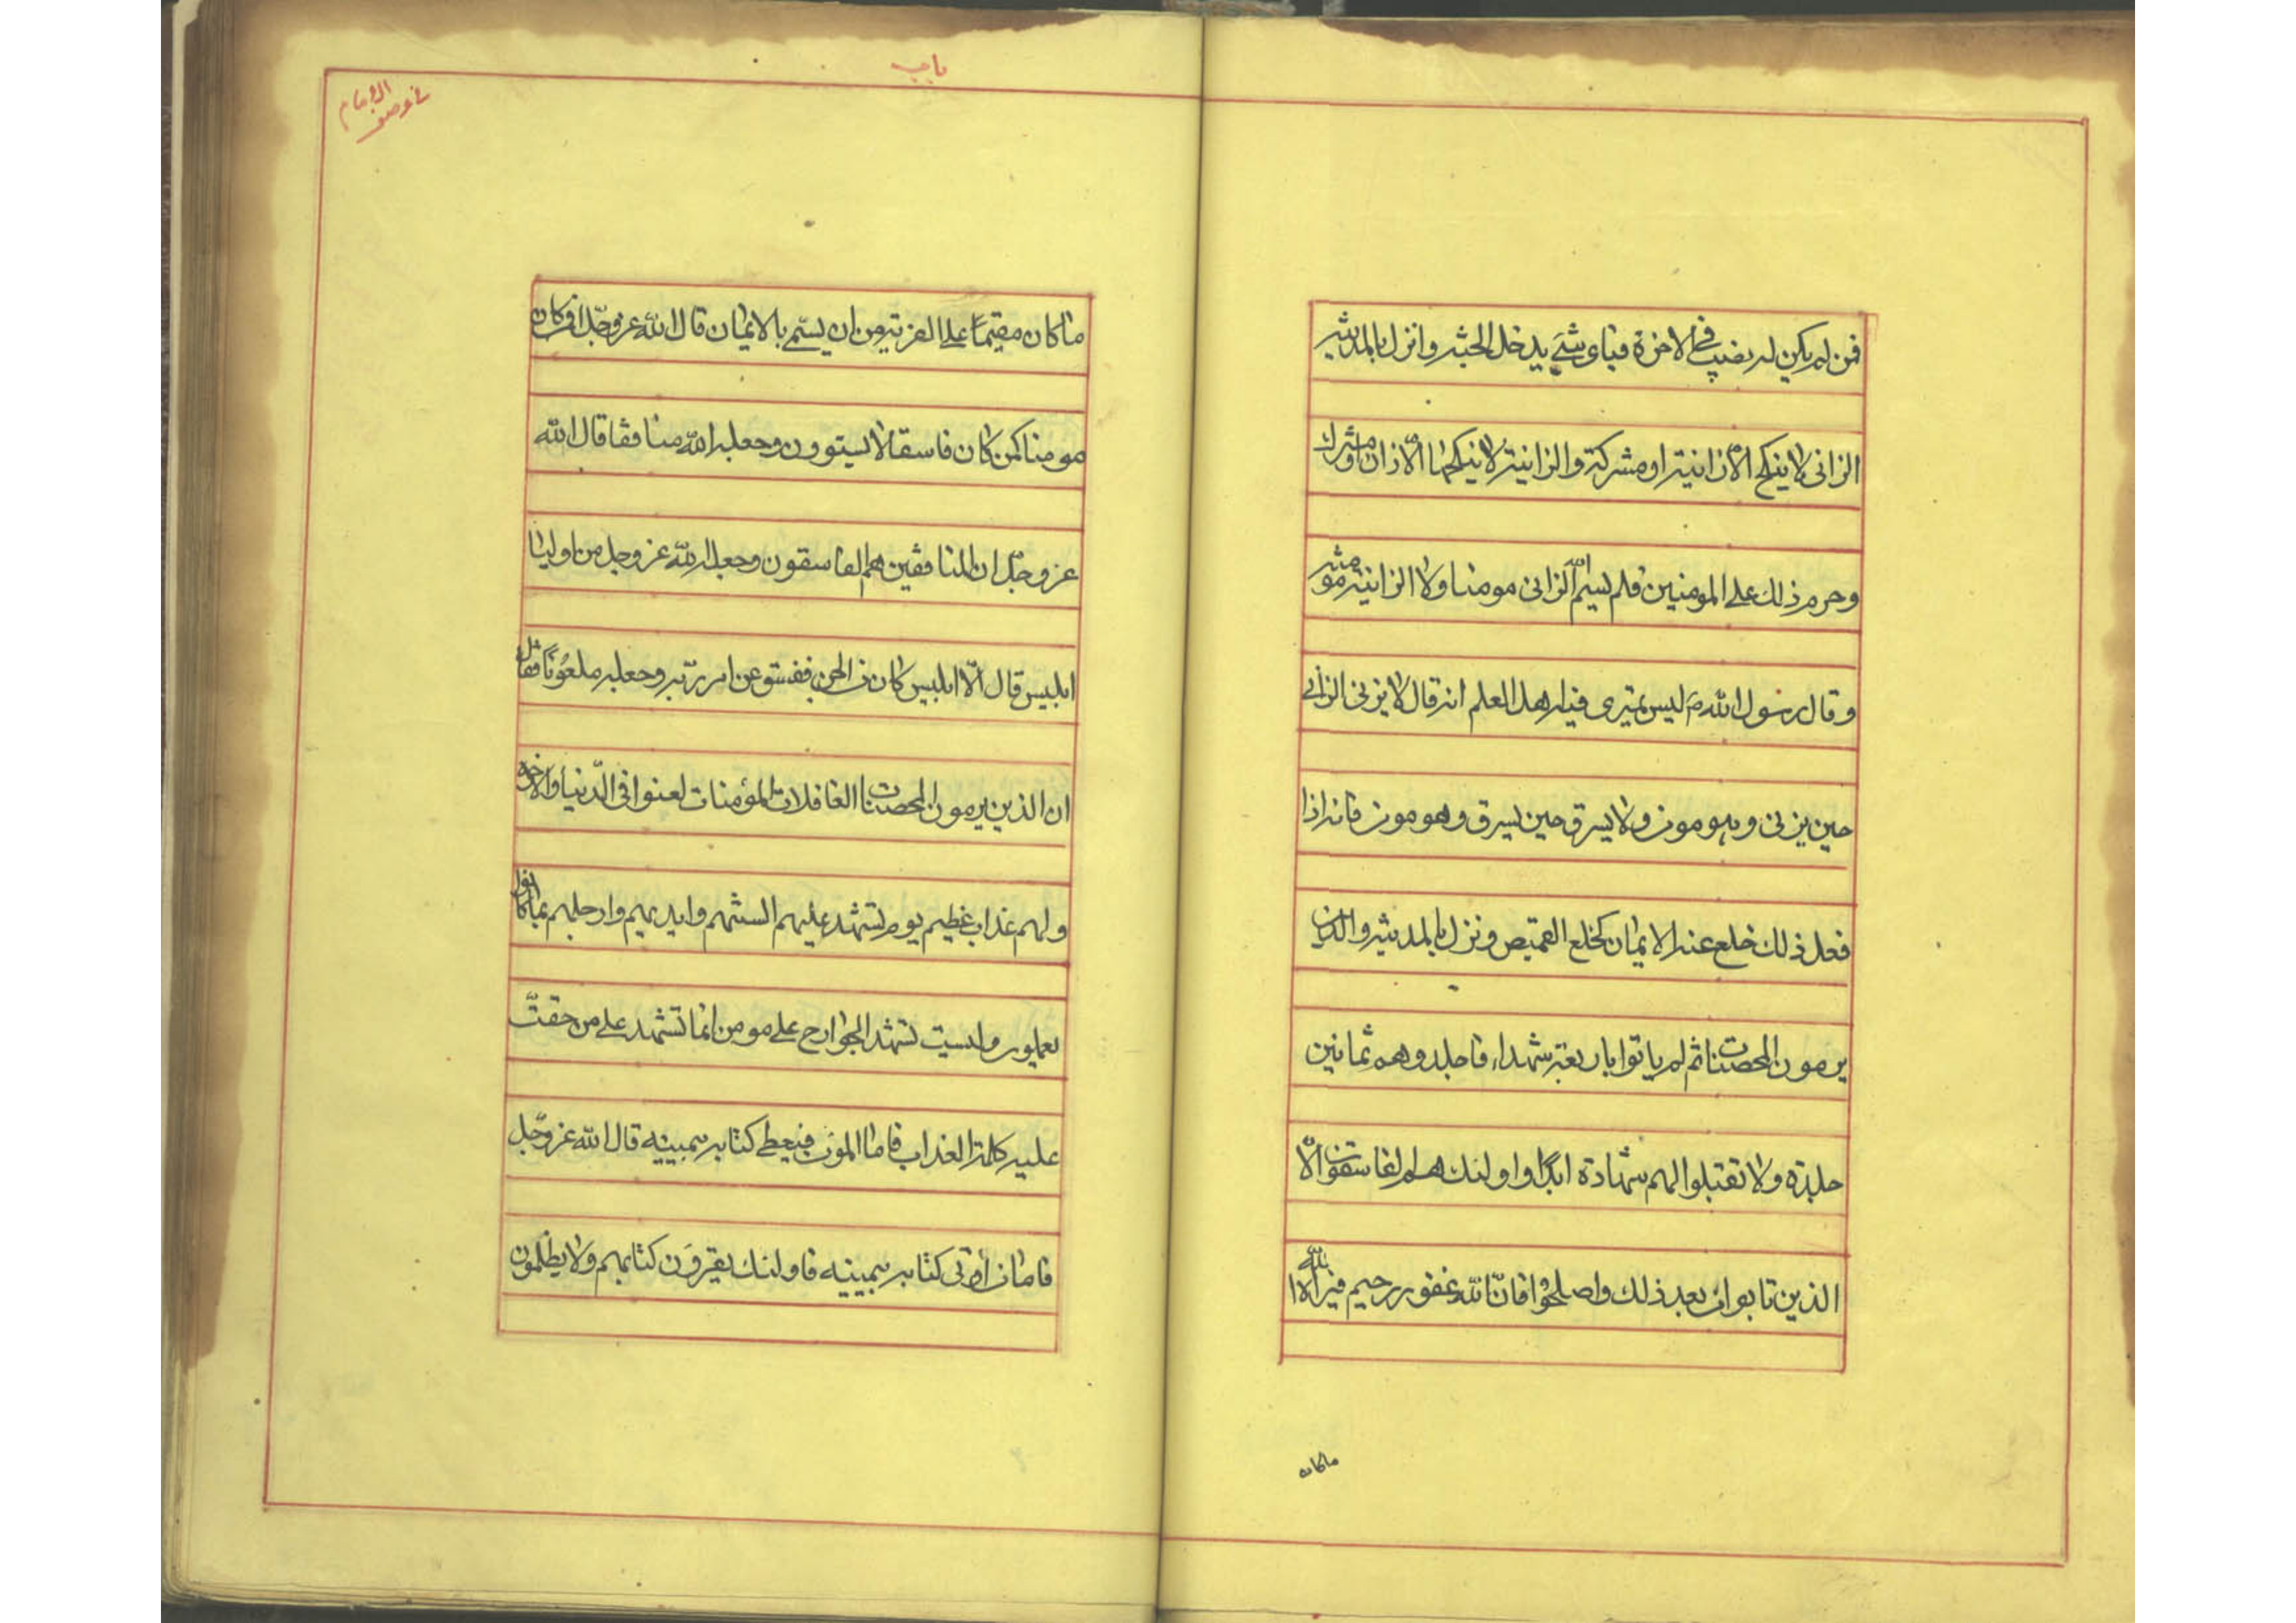 فمن لم يكن له نصيب في الاخرة فباي شئ يدخل الجنة وانزل بالمدينة
الزانى لا ينكح الا زانية او مشركة والزانية لا ينكحها الا زان او مشرك
وحرم ذلك على المومنين فلم يسم الله الزانى مومنا ولا الزانية مومنة
وقال رسول الله ص ليس يمترى فيه اهل العلم انه قال لا يزنى الزانى
حين يزنى وهو مومن ولا يسرق حين يسرق وهو مومن فانه اذا
فعل ذلك خلع عنه الايمان كخلع القميص ونزل بالمدينة والذين
يرمون المحصنات ثم لم ياتوا باربعة شهداء فاجلدوهم ثمانين
جلدة ولا تقبلوا لهم شهادة ابدا واولئك هم الفاسقون الا
الذين تابوا من بعد ذلك واصلحوا فان الله غفور رحيم فبراه الله
ماكان
باب
في وصف الايمان
ما كان مقيما على الفرية من ان يسمى بالايمان قال الله عز وجل افمن كان
مومنا كمن كان فاسقا لا يستوون وجعله الله منافقا قال الله
عز وجل ان المنافقين هم الفاسقون وجعله الله عز وجل من اوليا
ابليس قال الا ابليس كان من الجن ففسق عن امر ربه وجعله ملعونا فقال
ان الذين يرمون المحصنات الغافلات المؤمنات لعنوا في الدنيا والاخرة
ولهم عذاب عظيم يوم تشهد عليهم السنتهم وايديهم وارجلهم بما كانوا
يعملون وليست تشهد الجوارح على مومن انما تشهد على من حقت
عليه كلمة العذاب فاما المومن فيعطى كتابه بيمينه قال الله عز وجل
فاما من أوتى كتابه بيمينه فاولئك يقرؤن كتابهم ولا يظلمون